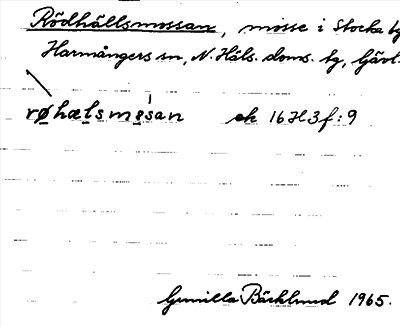 Rödhällsmossan, mosse i Stocka by
Harmångers sn, N. Häls. doms. hg, Gävl.
røhælsmosan ek 16H3f:9
Gunilla Bäcklund 1965.